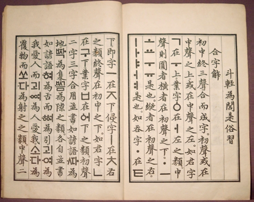 斗輕爲閭是俗習
合字解
初中終三聲合而成字初聲或在
中聲之上或在中聲之左如君字
ㄱ在ㅜ上業字ㆁ在ㅓ左之類中
聲則圓者橫者在初聲之下ㆍㅡ
ㅗㅛㅜㅠ是也縱者在初聲之右
ㅣㅏㅑㅓㅕ是也如呑字ㆍ在ㅌ
下即字ㅡ在ㅈ下侵字ㅣ在ㅊ右
之類終聲在初中之下如君字ㄴ
在구下業字ㅂ在ᅌᅥ下之類初聲
二字三字合用並書如諺語ᄯᅡ爲
地ᄧᅡᆨ爲隻ᄢᅳᆷ爲隙之類各自並書
如諺語혀爲舌而ᅘᅧ爲引괴여爲
我愛人而괴ᅇᅧ爲人愛我소다爲
覆物而쏘다爲射之之類中聲二